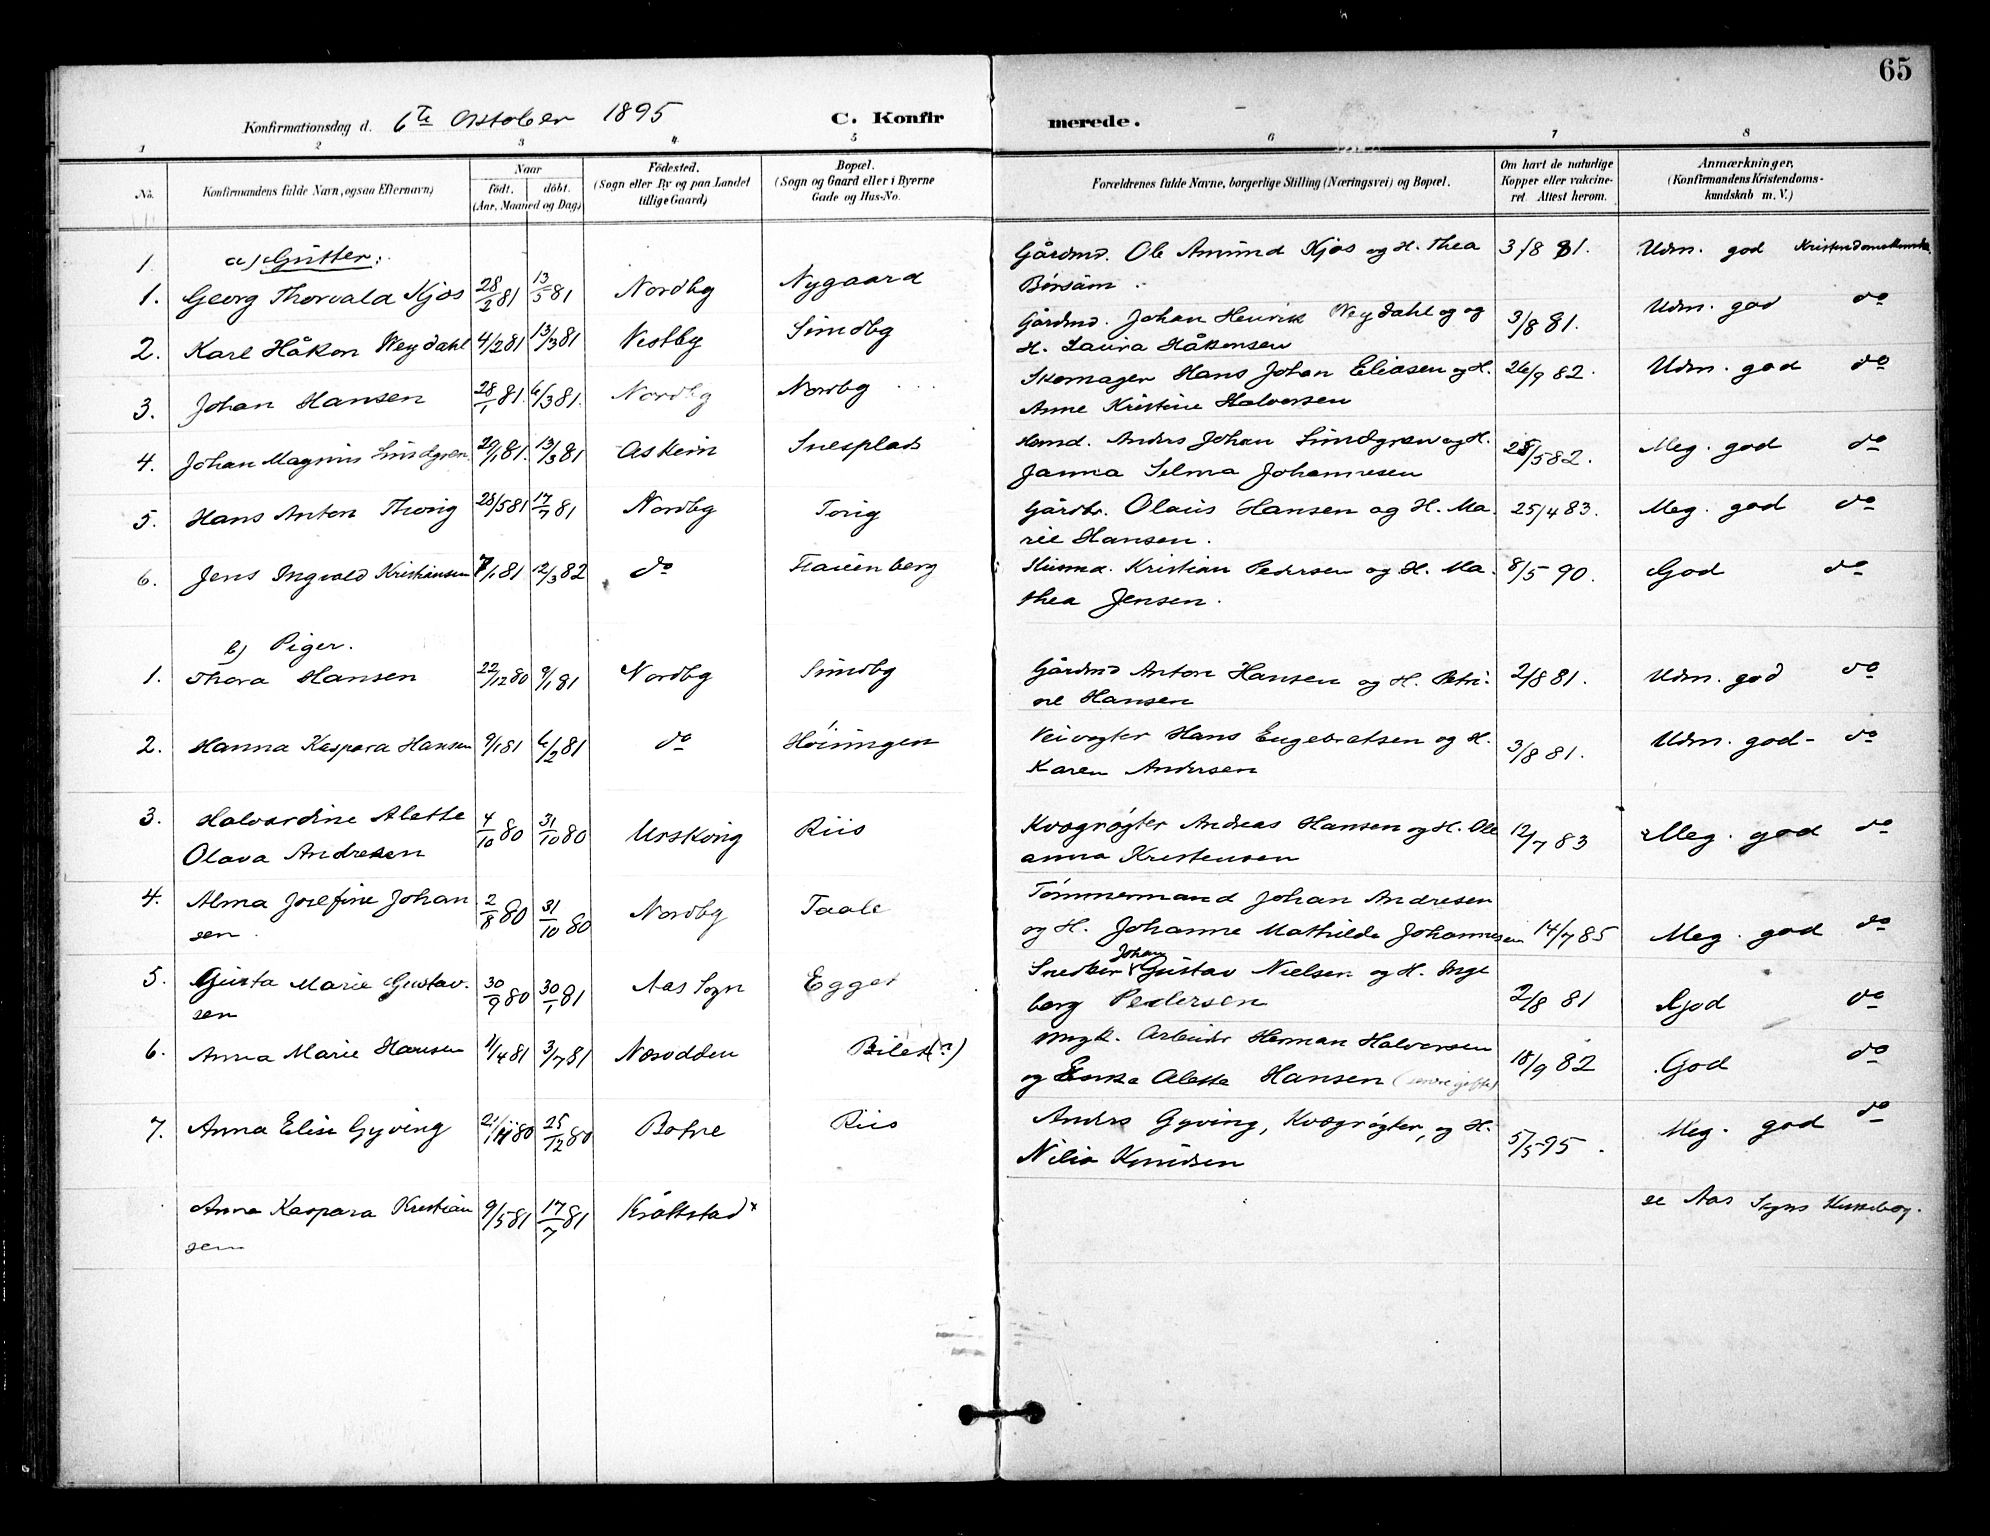 65
Konfirmationsdag d. 6te October 1895 C. Konfirmerede.
1 2 3 4 5 6 7 8
No. Konfirmandens fulde Navn, ogsaa Efternavn) Naar födt. döbt. (Aar, Maaned og Dag) Födested. (Sogn eller By og paa Landet tillige Gaard) Bopæl. (Sogn og Gaard eller i Byerne Gade og Hus-No. Forældrenes fulde Navne, borgerlige Stilling (Næringsvei) og Bopæl. Om havt de naturlige Kopper eller vakcineret. Attest herom. Anmærkninger. (Konfirmandens Kristendomskundskab m. V.)
1 a) Gutter:
1. Georg Thorvald Kjos 28/2 81 13/5 81 Nordby Nygaard Gårdmd. Ole Amund Kjos og H. Thea Børsum 3/8 81. Udm. god Kristendomskundsk.
2. Karl Håkon Weydahl 4/2 81 13/3 81 Vestby Sundby Gårdmd. Johan Henrik Weydahl og og H. Laura Håkensen 3/8 81. Udm. god do
3. Johan Hansen 28/1 81. 6/3 81. Nordby Nordby Skomager Hans Johan Eliasen og H. Anne Kristine Halvorsen 26/9 82. Udm. god do
4. Johan Magnus Lundgren 29/1 81. 13/3 81 Askim Snesplads Husmd. Anders Johan Lundgren og H. Janna Selma Johannesen 28/5 82. Meg. god do
5. Hans Anton Thorig 28/5 81 17/7 81 Nordby Torig Gårdbr. Olaus Hansen og H. Marie Hansen. 25/4 83. Meg. god do
6. Jens Ingvald Kristiansen 7/1 81 12/3 82 do Frauenberg Husmd. Kristian Pedersen og H. Mathea Jensen. 8/5 90. God do
b) Piger.
1. Thora Hansen 22/12 80 9/1 81 Nordby Sundby Gårdmd Anton Hansen og H. Petrine Hansen 2/8 81. Udm. god do
2. Hanna Kaspara Hansen 9/1 81 6/2 81 do Høiungen Veivogter Hans Engebretsen og H. Karen Andersen 3/8 81. Udm. god- do
3. Halvardine Alette Olava Andresen 4/10 80 31/10 80 Urskoug Riis Kvægrøgter Andreas Hansen og H. Oleanna Kristensen 12/7 83 Meg. god do
4. Alma Josefine Johansen. 2/8 80 31/10 80 Nordby Taale Tømmermand Johan Andresen og H. Johanne Mathilde Johannesen 14/7 85 Meg. god do
5. Gusta Marie Gustavsen 30/9 80 30/1 81 Aas Sogn Egget Snedker Johan Gustav Nielsen og H. Ingeborg Pedersen 2/8 81 God do
6. Anna Marie Hansen 1/4 81 3/7 81 Næsodden Bilet(n) Ungk. Arbeider Herman Halvorsen og Enke Alette Hansen 18/9 82 God do
7. Anna Elise Gyving 21/11 80 25/12 80 Botne Riis Anders Gyving, Kvægrøgter, og H. Nilia Knudsen 5/5 95. Meg. god do
Anna Kaspara Kristiansen 9/5 81 17/7 81 Kråkstad se Aas Sogns Kirkebog.